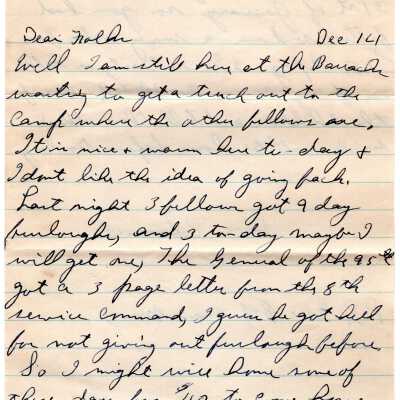 Dear Folks Dec 14
Well I am still here at the Barracks
waiting to get a truck out to the
camp where the other fellows are.
It is nice & warm here to-day &
I dont like the idea of going back.
Last night 3 fellows got 9 day
furloughs, and 3 to-day maybe I
will get one, The General of the 95th
got a 3 page letter from the 8th
service command, I guess he got hell
for not giving out furloughs before
So I might wire home some of
these days for $40 to come home